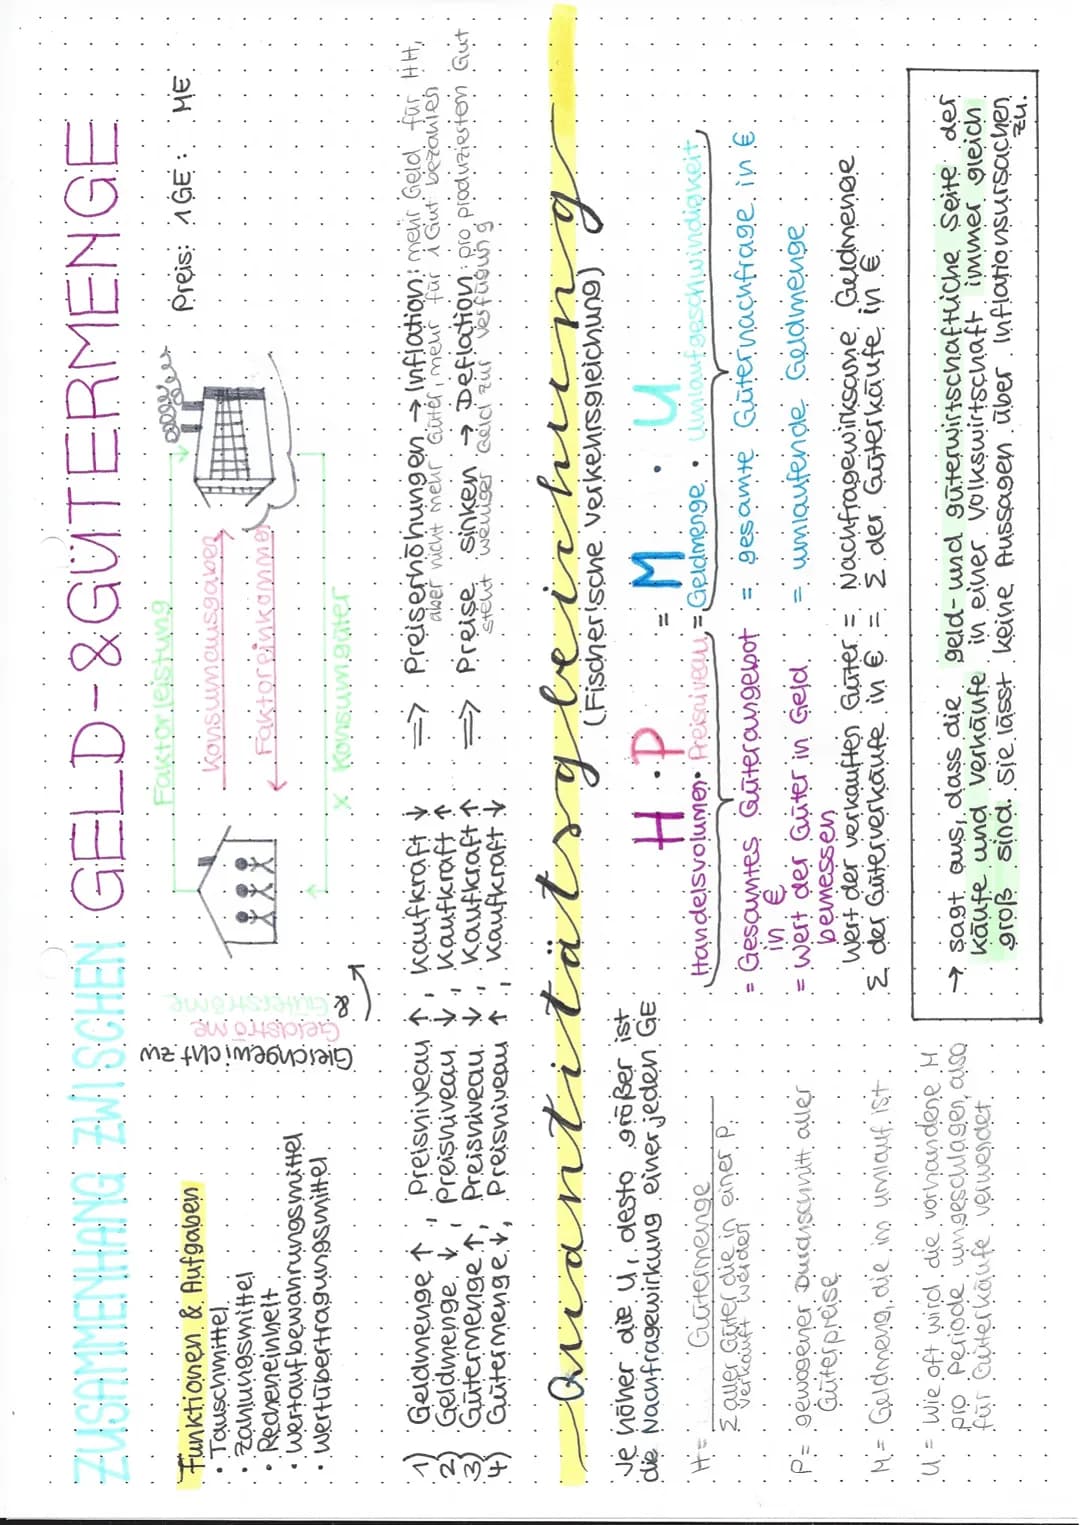 ZUSAMMENHANG ZWISCHEN GELD-&GÜTERMENGE
Funktionen & Aufgaben
• Tauschmittel
• Zahlungsmittel
• Recheneinheit
• Wertaufbewahrungsmittel
• Wertübertragungsmittel
Gleichgewicht zw
Geldströme
& Güterströme
Faktorleistung
Konsumausgaben
Faktoreinkommen
x Konsumgüter
Preis: 1GE: ME
1) Geldmenge ↑, Preisniveau ↑, Kaufkraft ↓ ⇒ Preiserhöhungen → Inflation: mehr Geld für HH,
aber nicht mehr Güter, mehr für 1 Gut bezahlen
2) Geldmenge ↓, Preisniveau ↓, Kaufkraft ↑ ⇒ Preise sinken → Deflation: pro produziesten Gut
steht weniger Geld zur Verfügung
3) Gütermenge ↑, Preisniveau ↓, Kaufkraft ↑
4) Gütermenge ↓, Preisniveau ↑, Kaufkraft ↓
Quantitätsgleichung
(Fischer'sche Verkehrsgleichung)
Je höher die U, desto größer ist
die Nachfragewirkung einer jeden GE
H = Gütermenge
Σ aller Güter die in einer P.
verkauft werden
P = gewogener Durchschnitt aller
Güterpreise
M = Geldmeng, die in umlauf ist
U = Wie oft wird die vorhandene M
pro Periode umgeschlagen, also
für Güterkäufe verwendet
H · P = M · U
Handelsvolumen · Preisniveau = Geldmenge · Umlaufgeschwindigkeit
= Gesamtes Güterangebot
in €
= gesamte Güternachfrage in €
= Wert der Güter in Geld
bemessen
= umlaufende Geldmenge
Wert der verkauften Güter = Nachfragewirksame Geldmenge
Σ der Güterverkäufe in € = Σ der Güterkäufe in €
→ sagt aus, dass die geld- und güterwirtschaftliche Seite der
Käufe und Verkäufe in einer Volkswirtschaft immer gleich
groß sind. Sie lässt keine Aussagen über Inflationsursachen
zu.